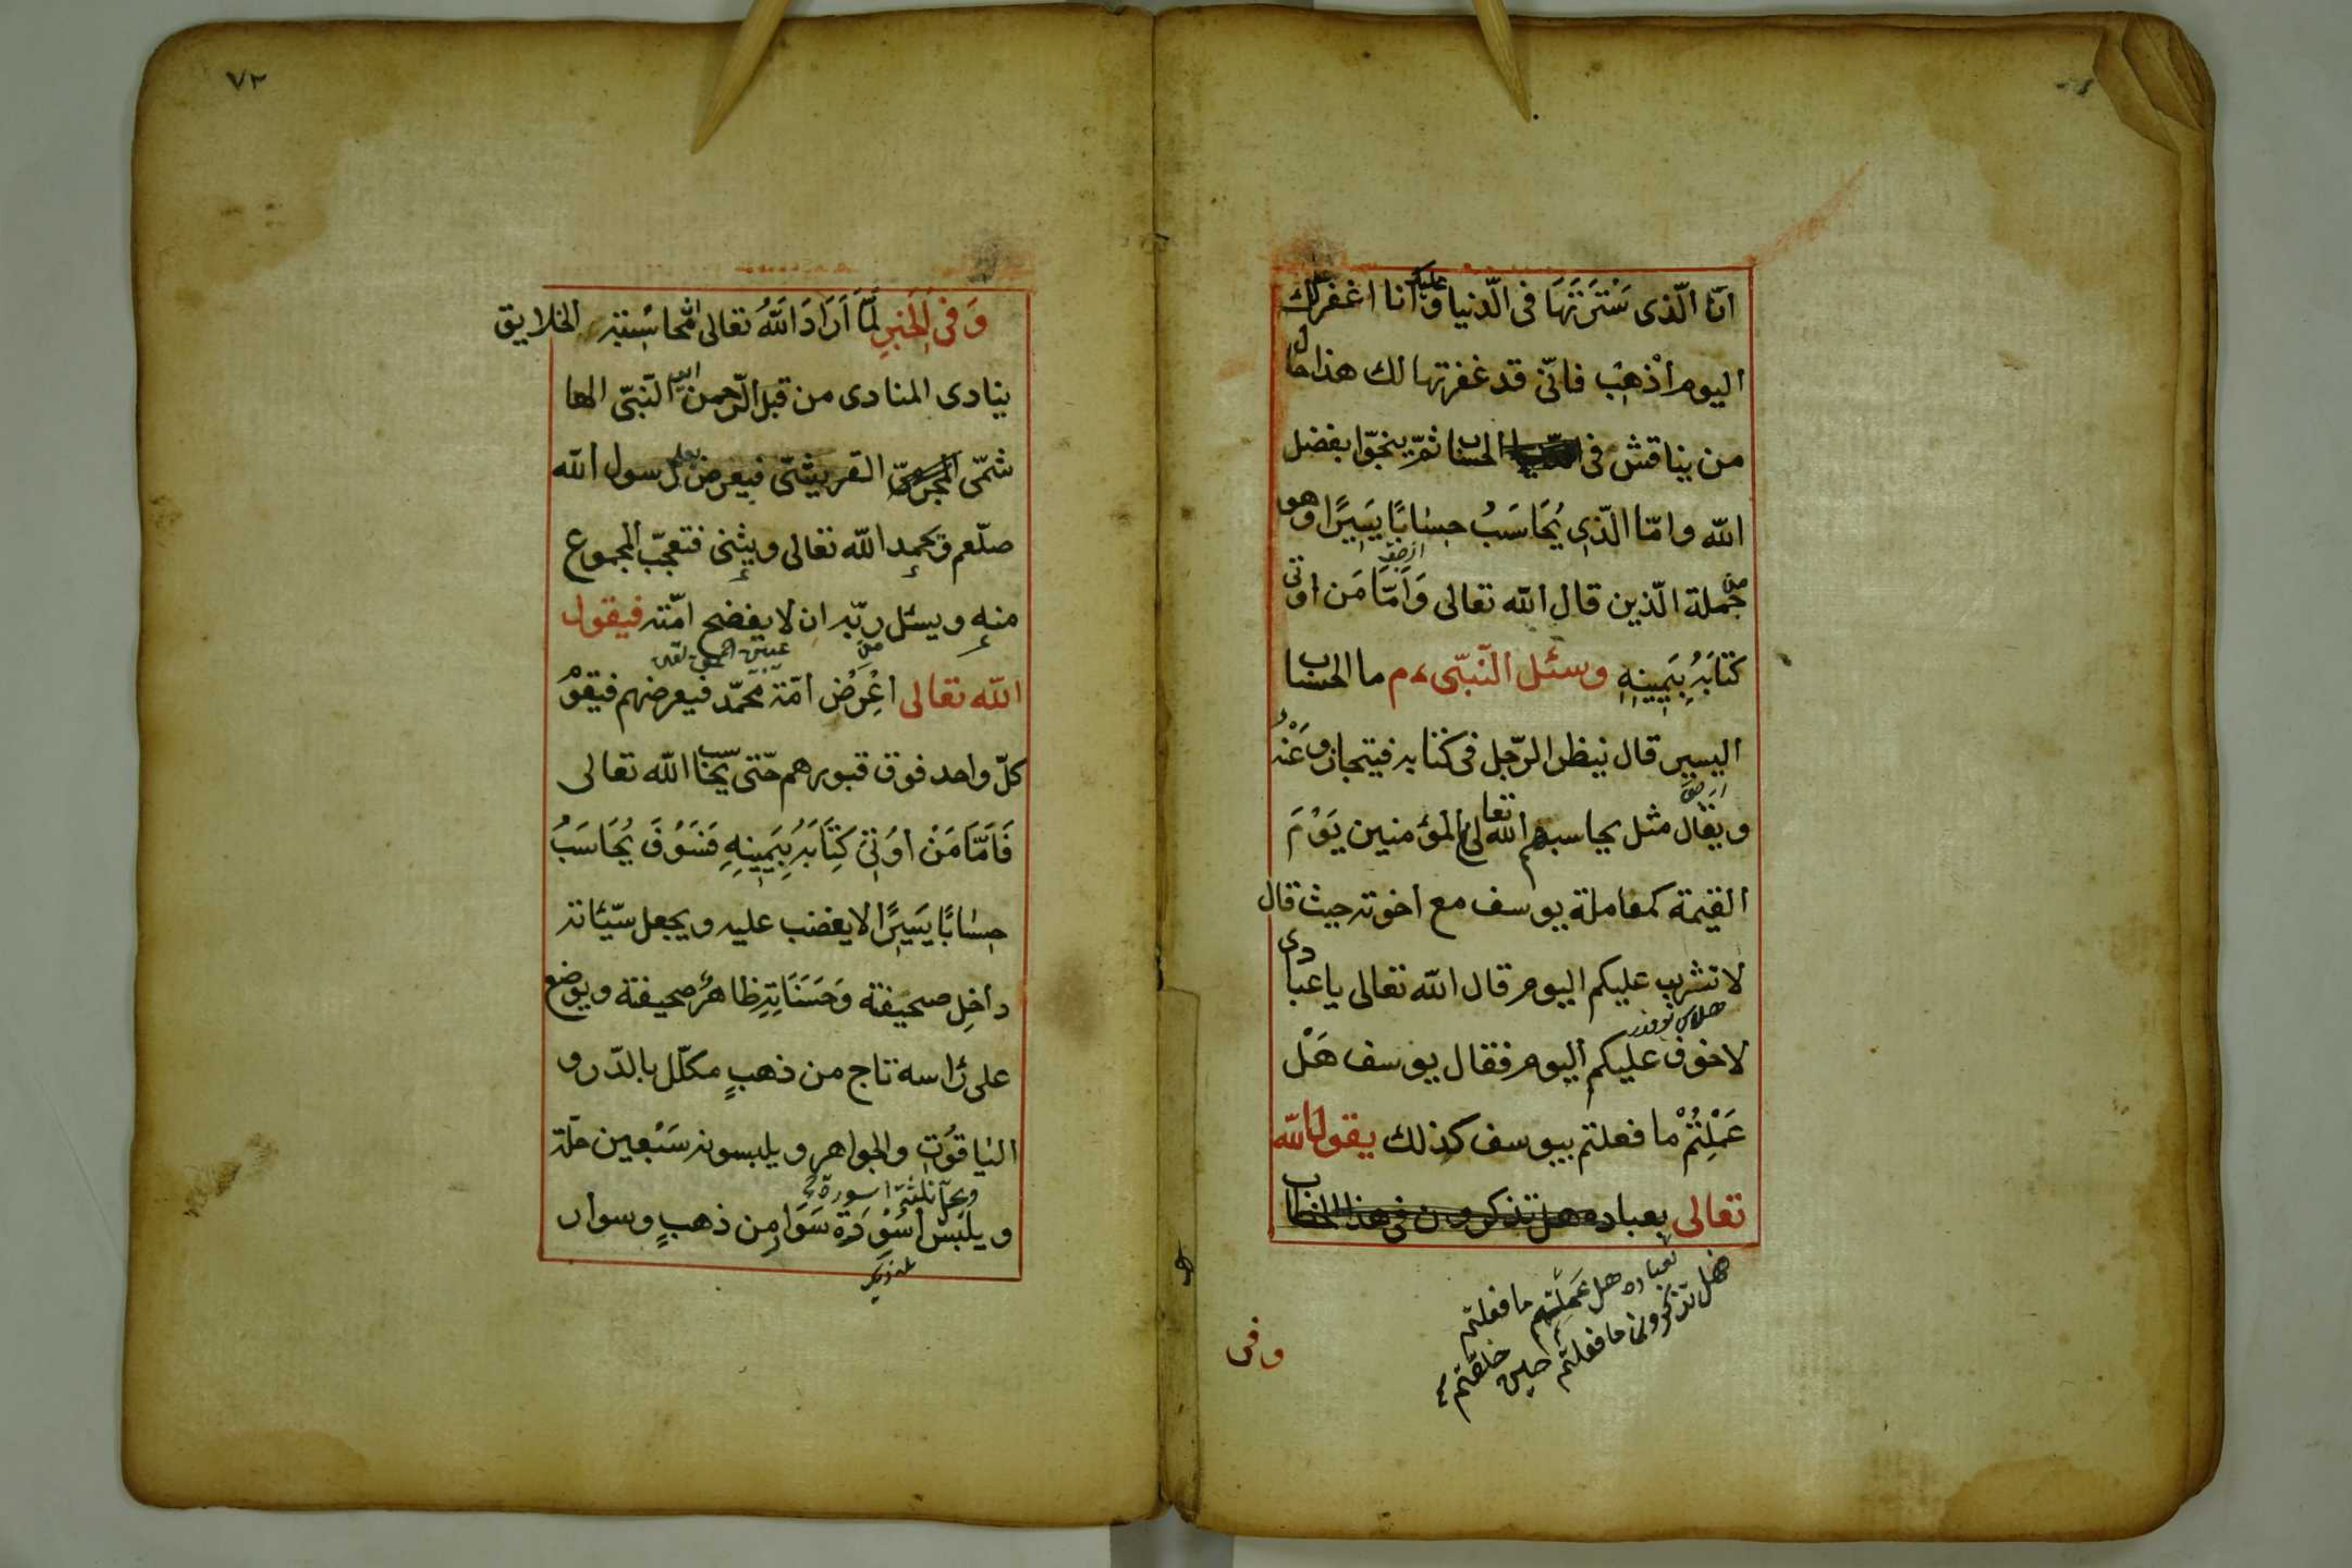 انا الّذى سَتَرْتَهَا فى الّدنيا عليك وانا اغفر لك
اليوم اذْهَبْ فانّى قد غفرتها لك هذا حال
من يناقش فى الحساب ثمّ ينجوا بفضل
الله وامّا الّذى يُحَاسَبُ حِسَابًا يَسِيرًا وهو
من جملة الّذين قال الله تعالى وَاَمَّا مَن اوتى
كتَابَهُ بِيَمِينِهِ وسئل النّبىّ ءم ما الحساب
اليسير قال ينظر الرّجل فى كتابه فيتجاوز عَنْهُ
ويقال مثل يحاسبهم الله تعالى المؤمنين يَوْمَ
القيمة كمعاملة يوسف مع اخوته حيث قال
لا تثريب عليكم اليوم قال الله تعالى يا عبادى
لا خوف عليكم اليوم فقال يوسف هَلْ
عَمِلْتُمْ ما فعلتم بيوسف كذلك يقول الله
تعالى بعباده هل تذكرون فى هذا الخطاب
لعباده هل عملتم ما فعلتم
هل تذكرون ما فعلتم حين خلقتم
وفى
٧٢
وَفى الخَبَرِ لَمَّا اَرَادَ اللهُ تعالى محاسبة الخلايق
ينادى المنادى من قبل الرّحمن اين النّبىّ الها
شمّى القريشىّ فيعرض رسول الله
صلّعم ويحمد الله تعالى ويثنى فتعجّب المجموع
منه ويسئل ربّه ان لا يفضح امّته فيقول
الله تعالى اعْرَضْ امّة محمّد فيعرضهم فيقوم
كلّ واحد فوق قبورهم حتّى يحاسب الله تعالى
فَاَمَّا مَنْ اُوتِىَ كِتَابَهُ بِيَمِينِهِ فَسَوْفَ يُحَاسَبُ
حِسَابًا يَسِيرًا لا يغضب عليه ويجعل سيّئاته
داخِل صحيفته وَحَسَنَاتِهِ ظاهر صحيفته ويوضع
على رأسه تاج من ذهبٍ مكلّل بالدّر و
الياقوُت والجواهر ويلبسونه سَبْعين حلّة
ويحلّ ثلثة اسورة
ويلبَسْ اسْوِرَة سَوَار مِن ذهبٍ وسوار